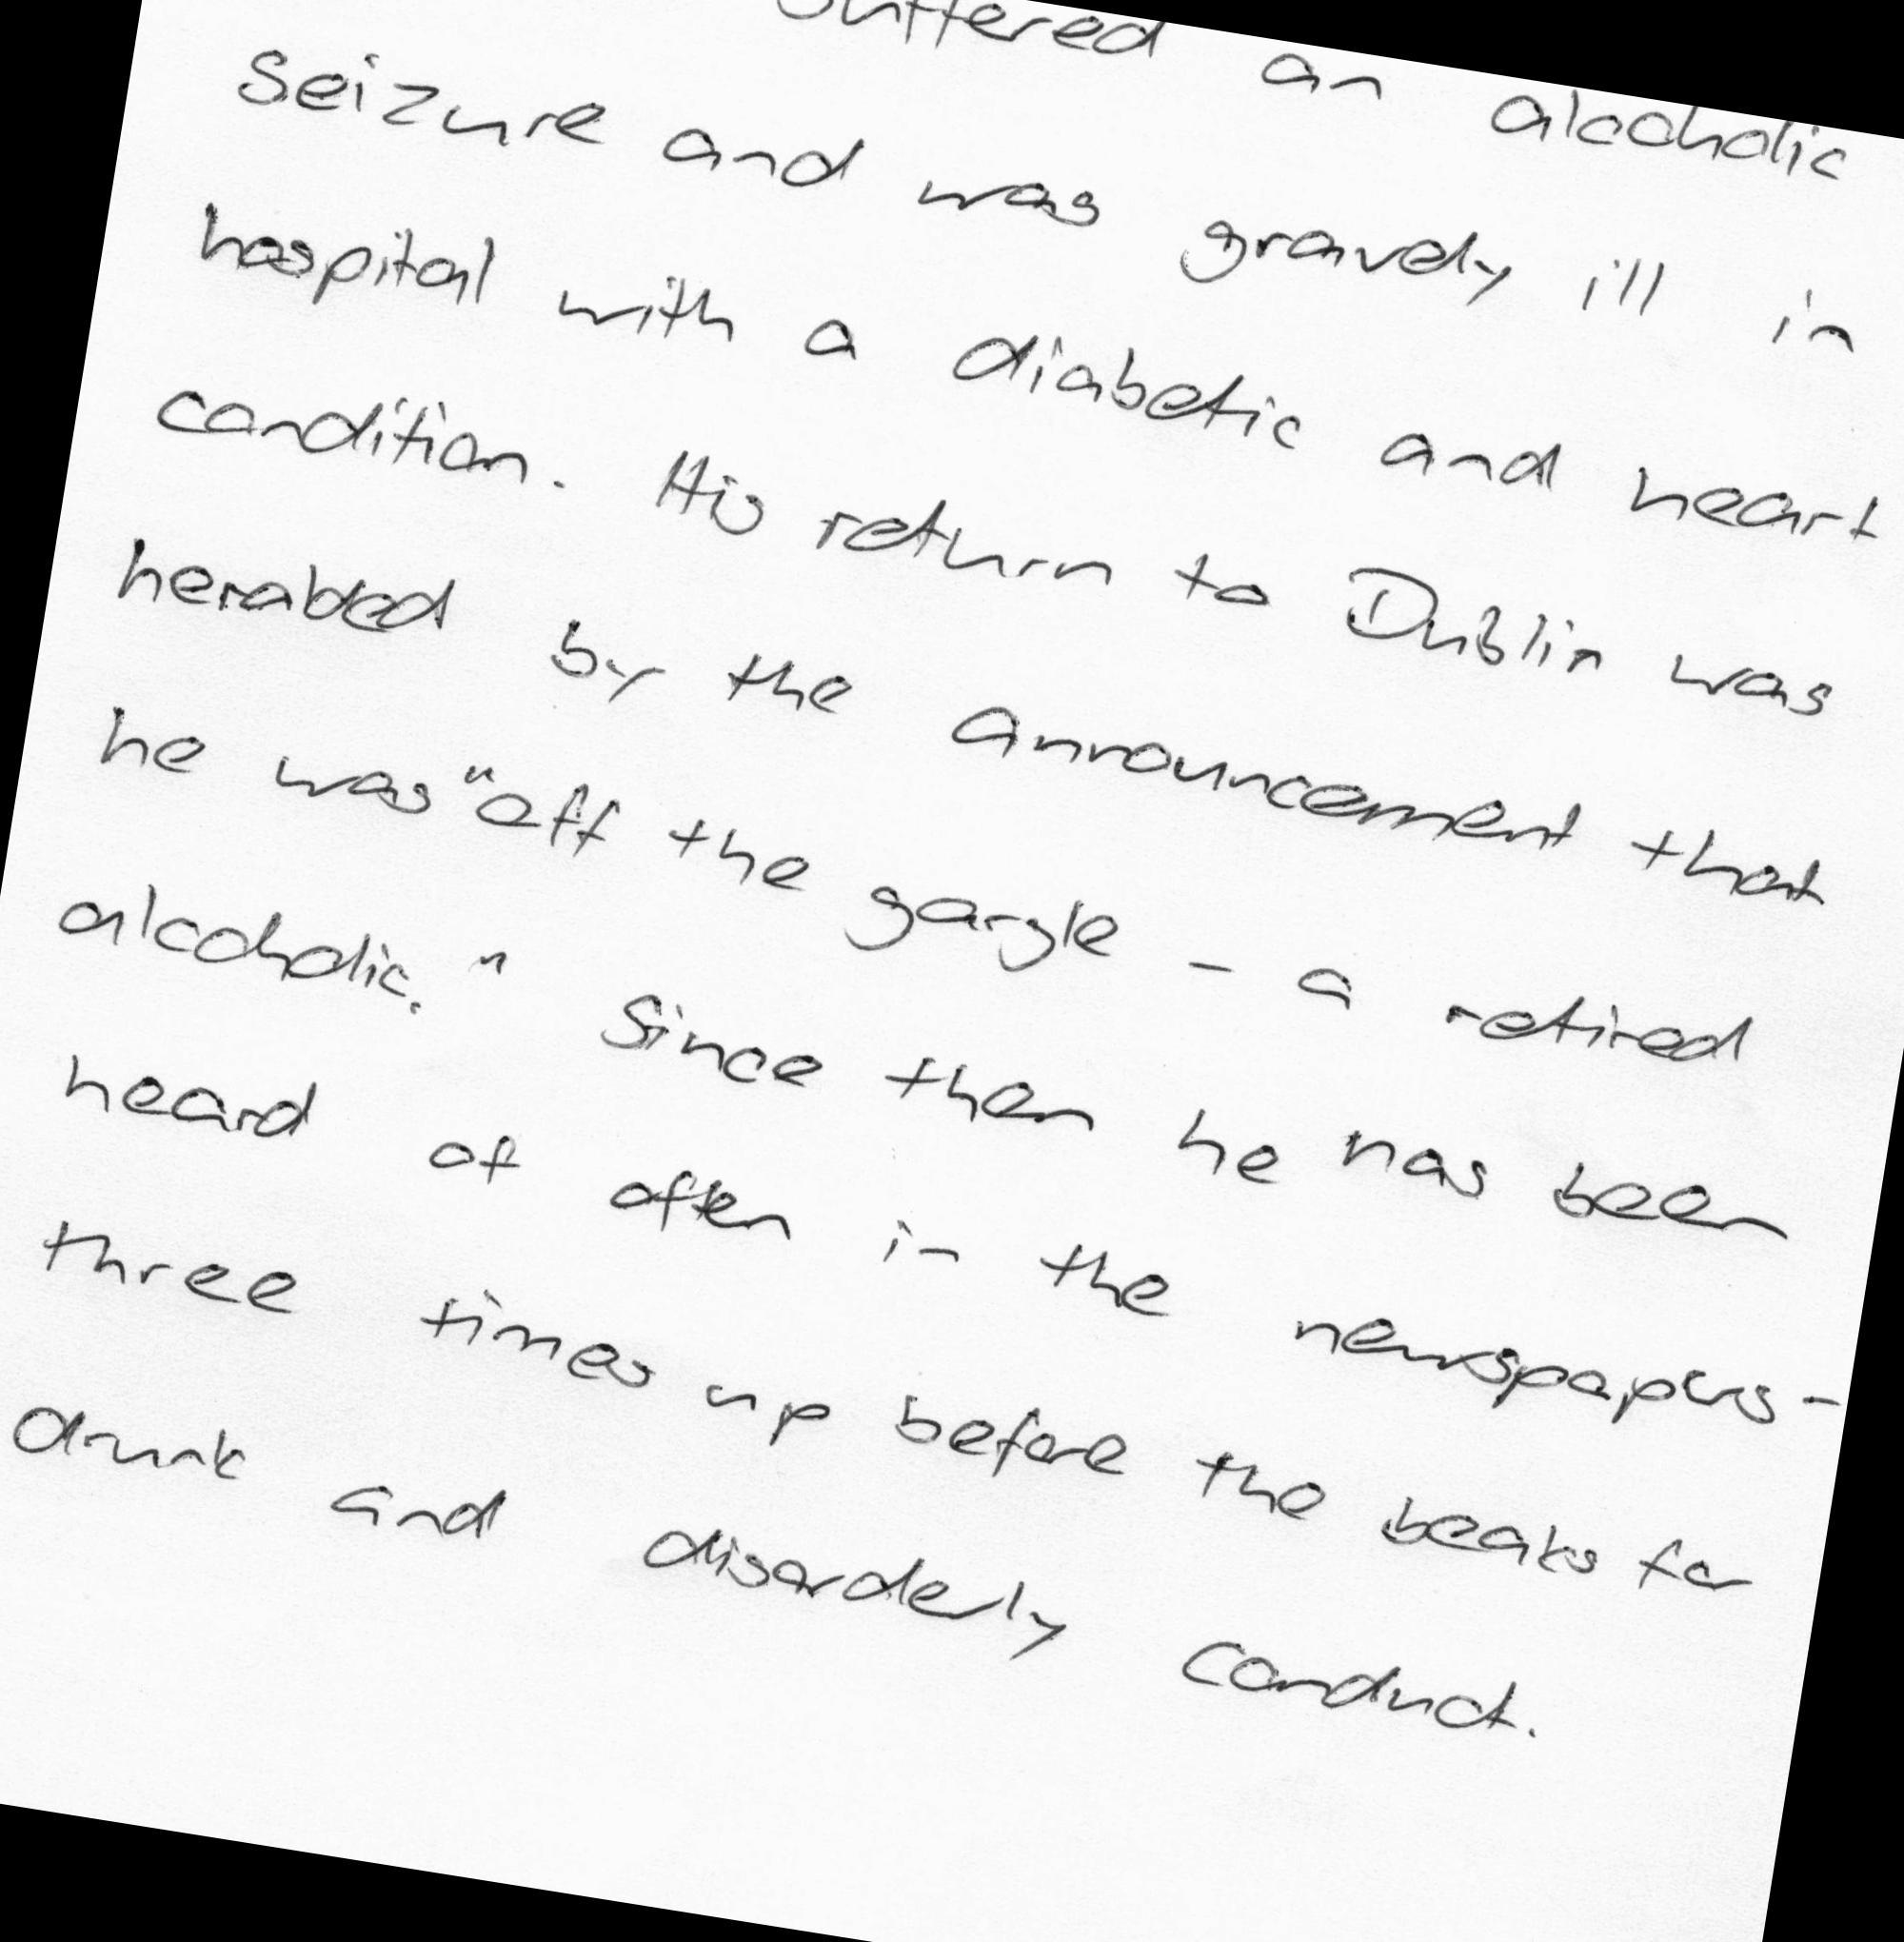 suffered an alcoholic
seizure and was gravely ill in
hospital with a diabetic and heart
condition. His return to Dublin was
herabded by the announcement that
he was "off the gargle - a retired
alcoholic." Since then he has been
heard of often in the newspapers -
three times up before the beaks for
drunk and disorderly conduct.